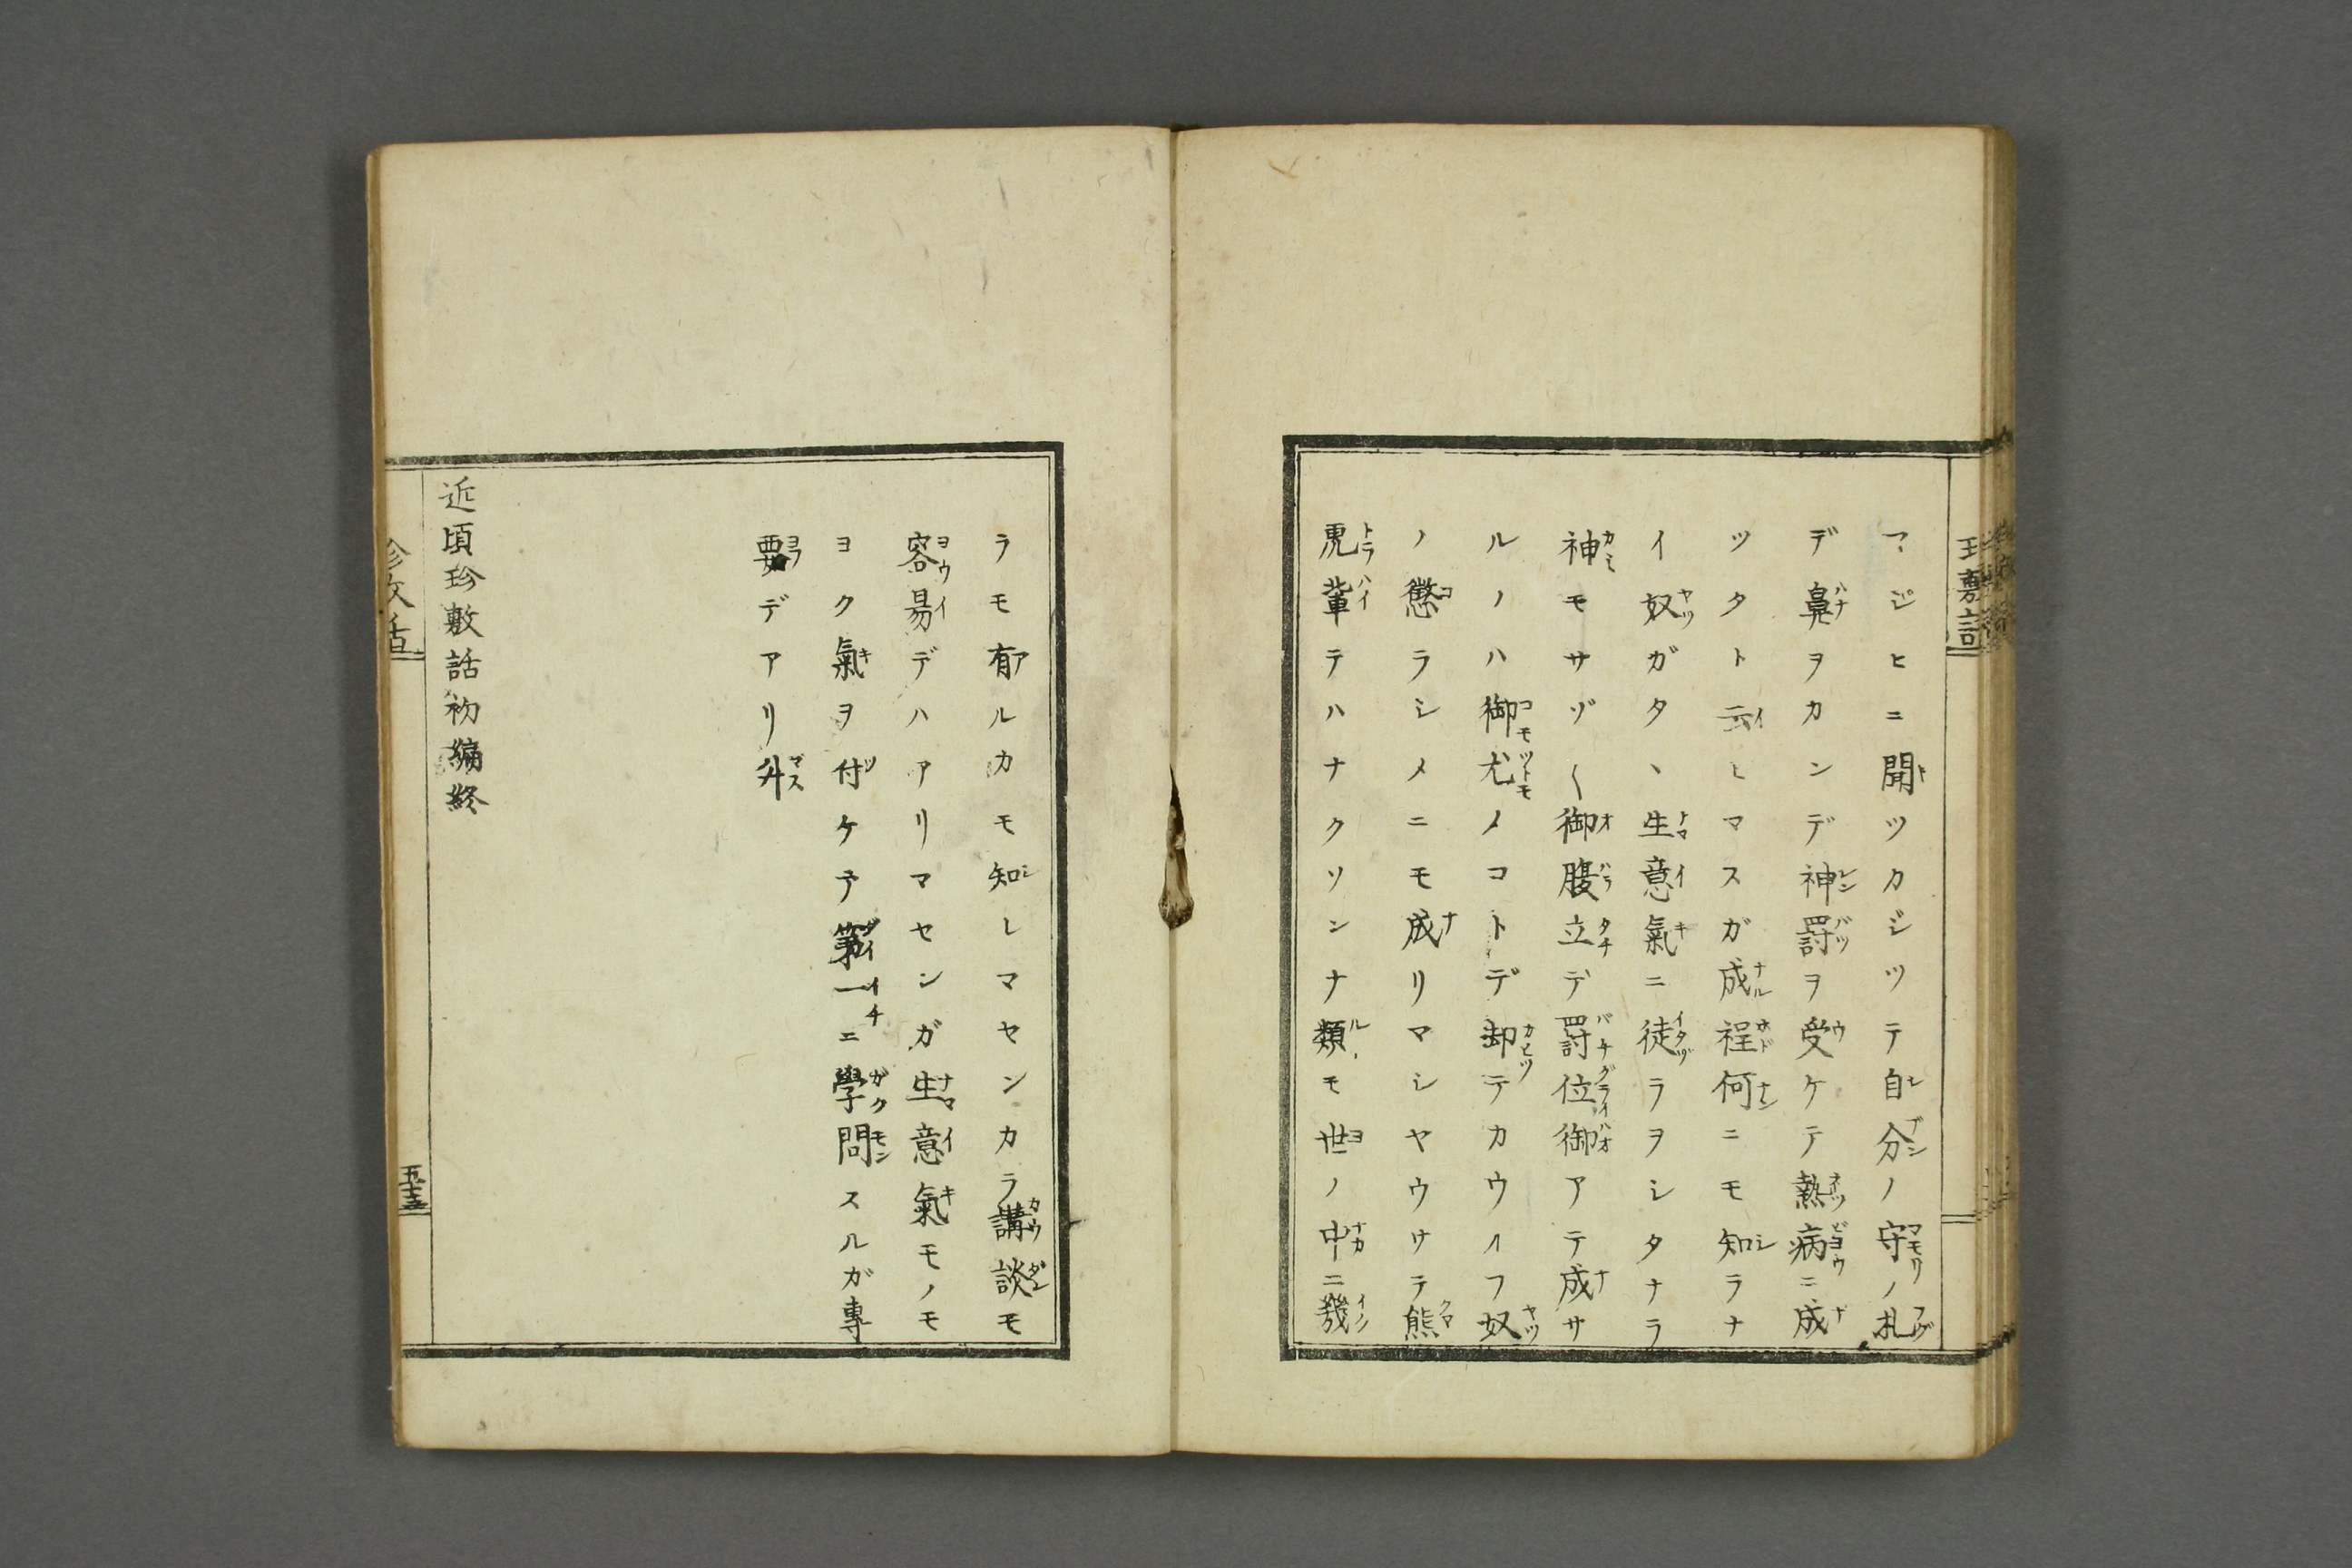 マジヒニ聞ツカジツテ自分ノ守ノ札
デ鼻ヲカンデ神罸ヲ受ケテ熱病ニ成
ツタト云ヒマスガ成程何ニモ知ラナ
イ奴ガタヽ生意氣ニ徒ラヲシタナラ
神モサゾ〳〵御腹立デ罸位御アテ成サ
ルノハ御尤ノコトデ却テカウイフ奴
ノ懲ラシメニモ成リマシヤウサテ熊
虎輩テハナクソンナ類モ世ノ中ニ幾
ラモ有ルカモ知レマセンカラ講談モ
容易デハアリマセンガ生意氣モノモ
ヨク氣ヲ付ケテ第一ニ學問スルガ專
要デアリ升
近頃珍敷話初編終
五十五